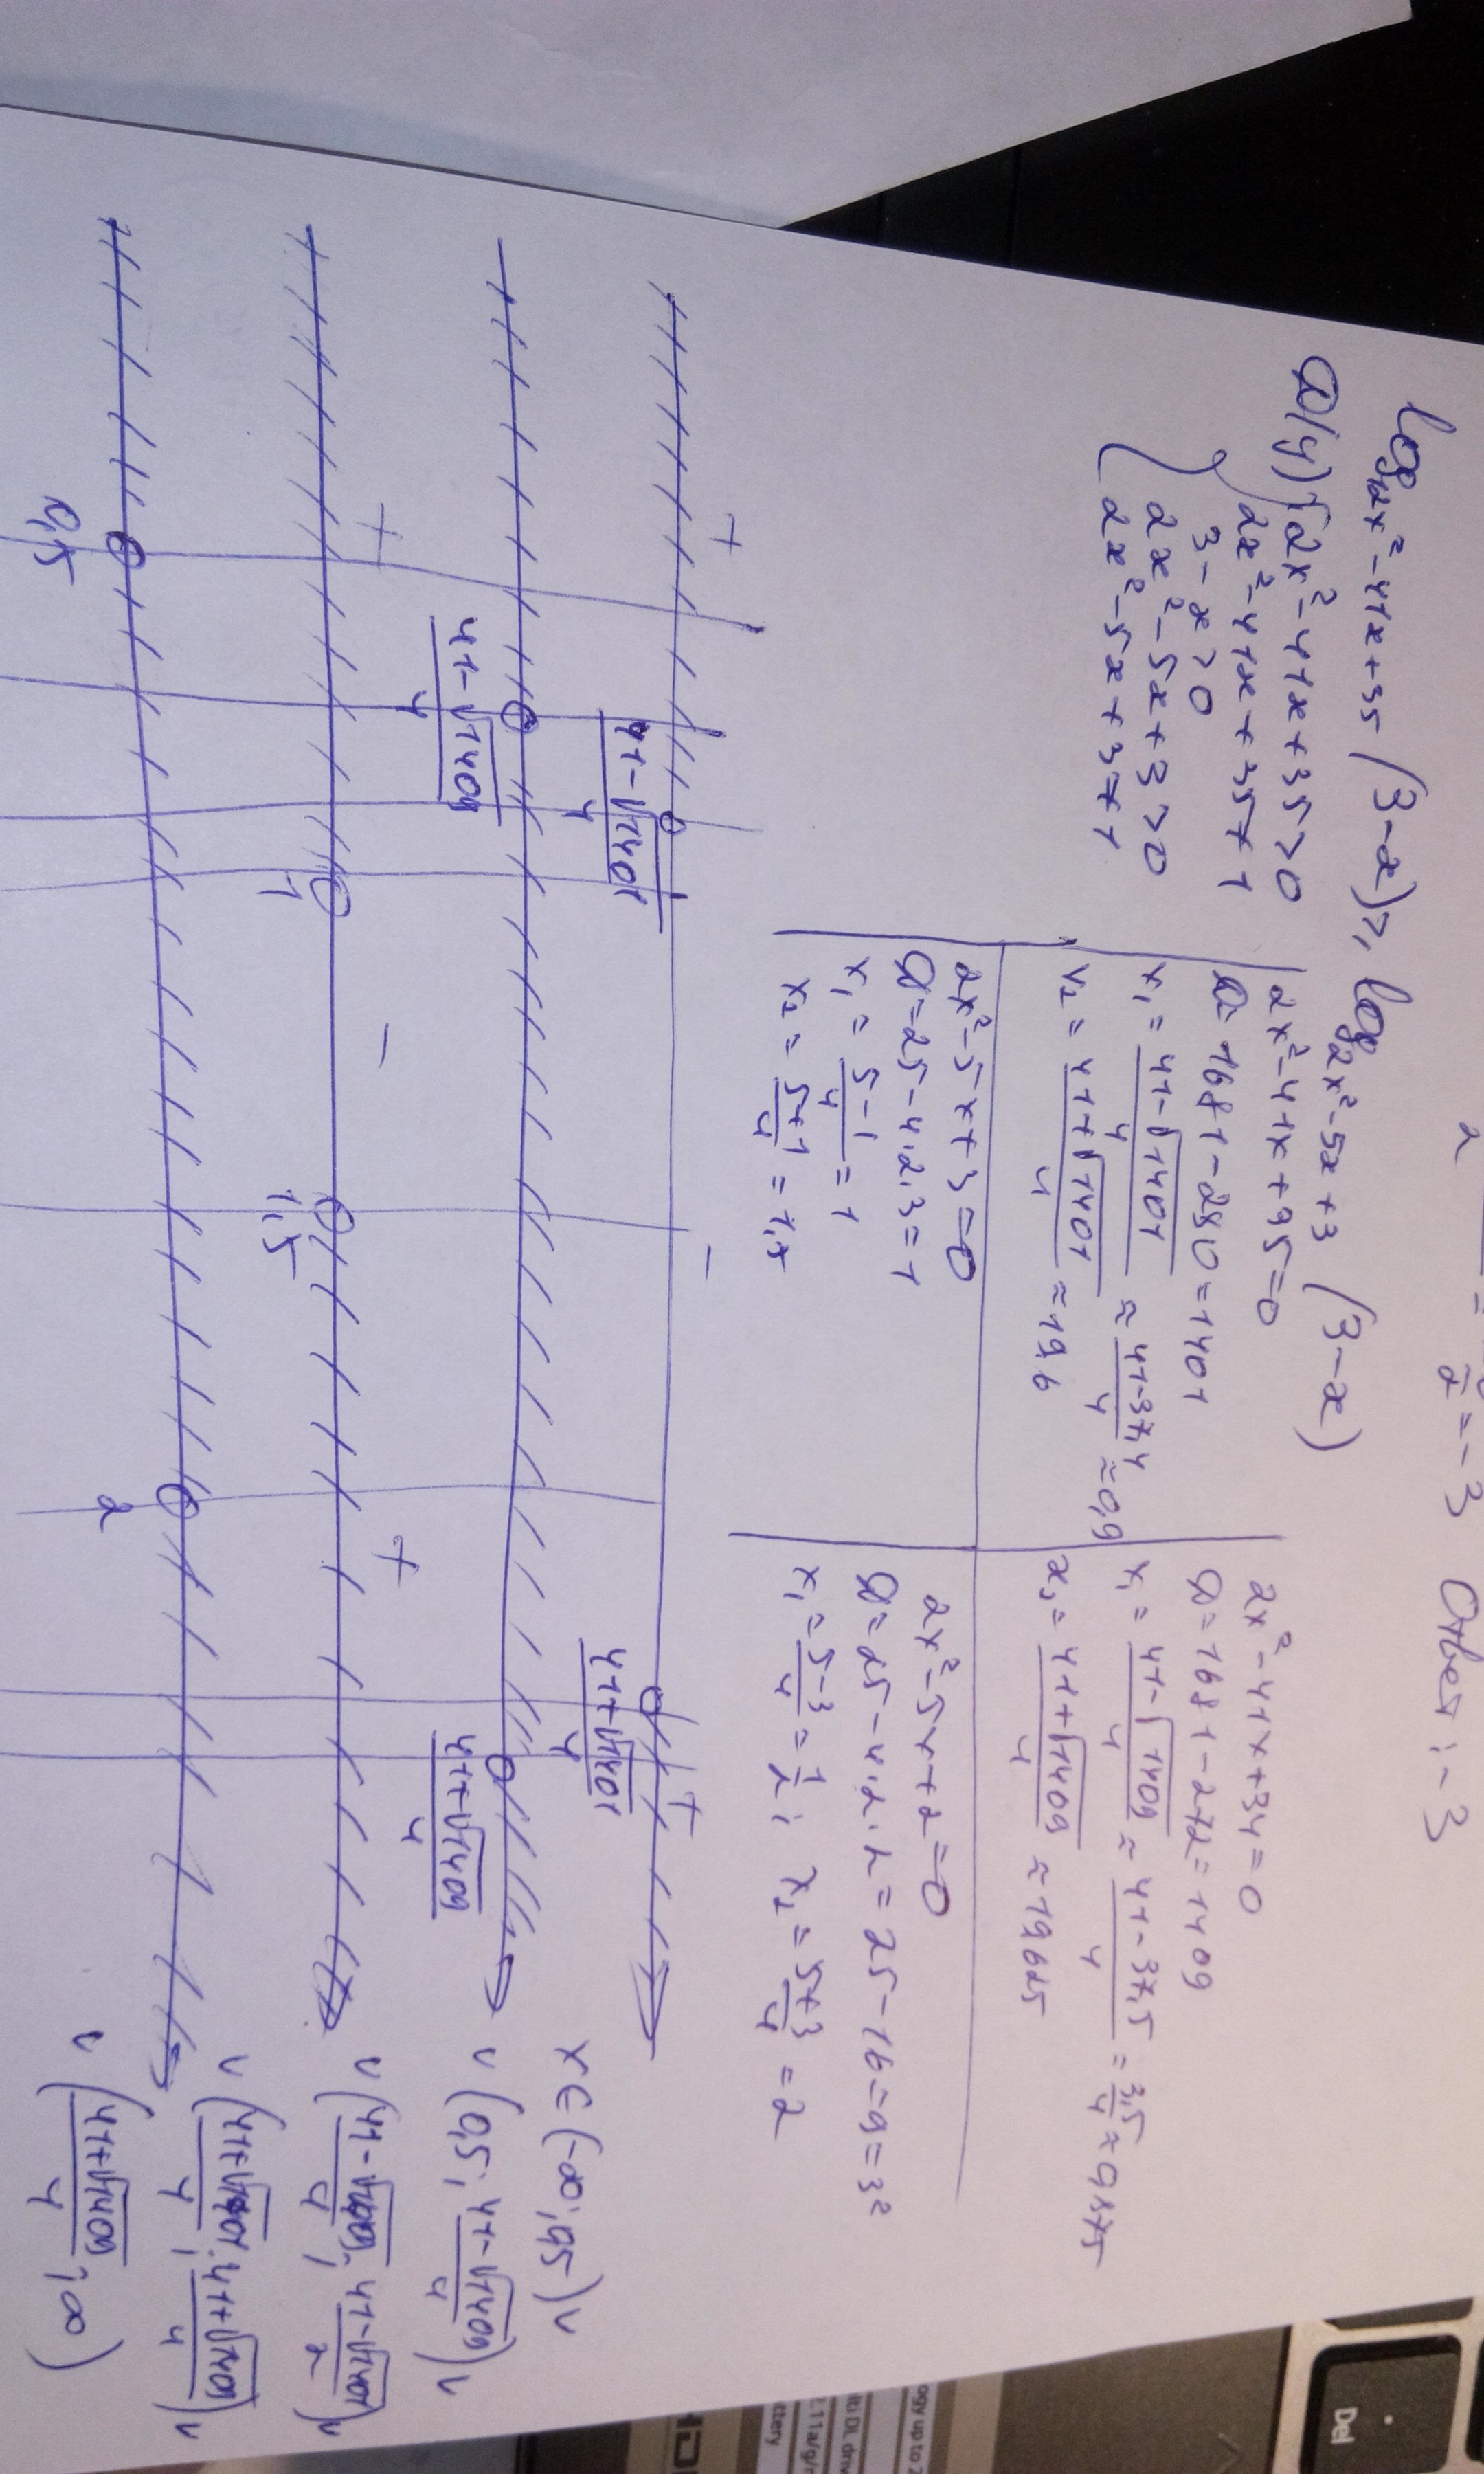 = -3 Ответ: -3
log_{2x²-41x+35} (3-x) ≥ log_{2x²-5x+3} (3-x)
D(y) { 2x²-41x+35>0
2x²-41x+35≠1
3-x>0
2x²-5x+3>0
2x²-5x+3≠1
2x²-41x+35=0
D=1681-280=1401
x₁ = (41-√1401)/4 ≈ (41-37,4)/4 ≈ 0,9
x₂ = (41+√1401)/4 ≈ 19,6
2x²-41x+34=0
D=1681-272=1409
x₁ = (41-√1409)/4 ≈ (41-37,5)/4 = 3,5/4 ≈ 0,875
x₂ = (41+√1409)/4 ≈ 19,625
2x²-5x+3=0
D=25-4·2·3=1
x₁ = (5-1)/4 = 1
x₂ = (5+1)/4 = 1,5
2x²-5x+2=0
D=25-4·2·2=25-16=9=3²
x₁ = (5-3)/4 = 1/2; x₂ = (5+3)/4 = 2
+ - +
(41-√1401)/4 (41+√1401)/4
(41-√1409)/4 (41+√1409)/4
+ - +
1 1,5
0,5 2
x∈(-∞; 0,5)∪
∪(0,5; (41-√1409)/4)∪
∪((41-√1409)/4; (41-√1401)/2)∪
∪((41+√1401)/4; (41+√1409)/4)∪
∪((41+√1409)/4; ∞)
Del
ogy up to 2
lti DL driv
.11a/g/n
ttery